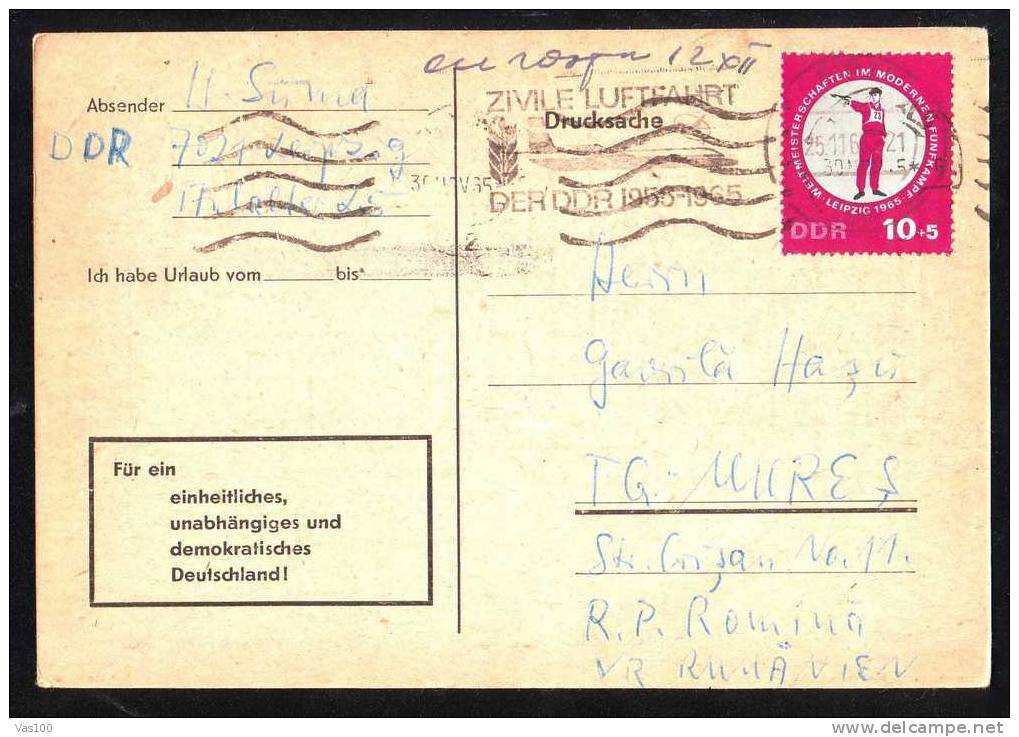 12 XII
Absender
DDR
ZIVILE LUFTFAHRT
Drucksache
DER DDR 1955-1965
30 NOV 65
WELTMEISTERSCHAFTEN IM MODERNEN FÜNFKAMPF · LEIPZIG 1965 ·
23
25.11.6 21
DDR 10+5
Ich habe Urlaub vom bis
Herrn
Gavrilă
TG. MUREŞ
Str. Crişan No. 11.
R. P. Romînă
VR RUMÄNIEN
Für ein
einheitliches,
unabhängiges und
demokratisches
Deutschland!
Vas100
www.delcampe.net